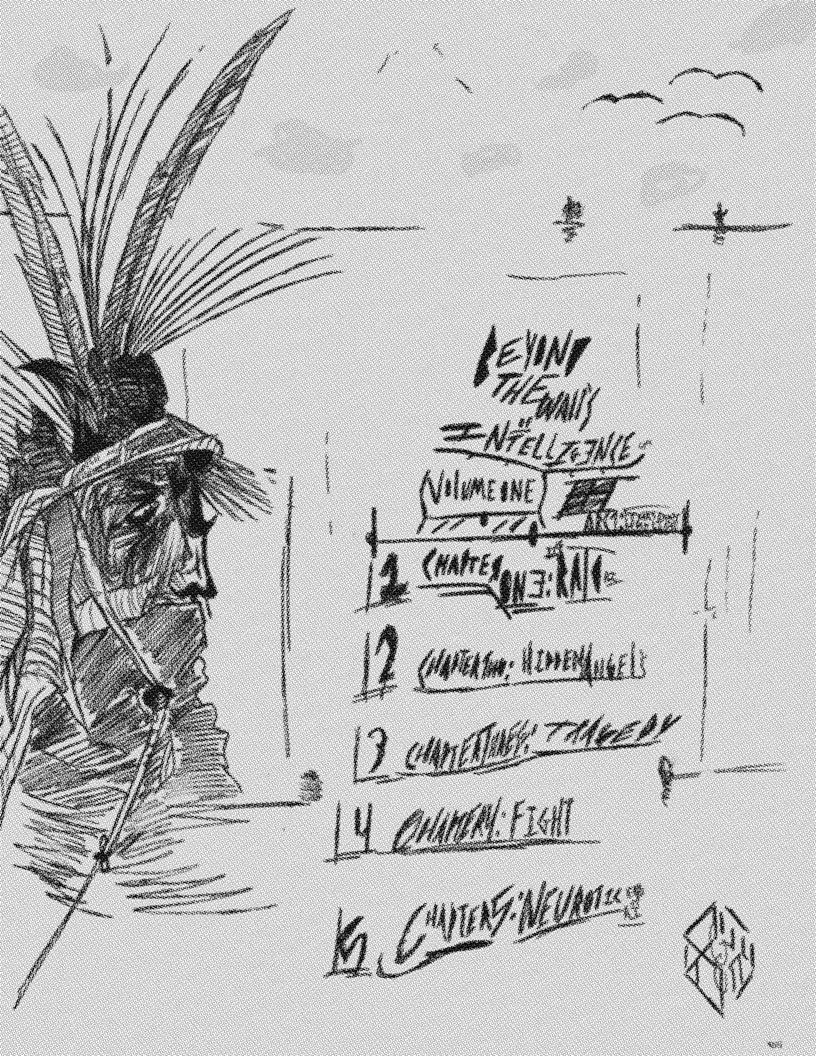 BEYOND
THE
WALLS
OF
INTELLIGENCE
VOLUME ONE
1 CHAPTER ONE: RAID
2 CHAPTER TWO: HIDDEN ANGELS
3 CHAPTER THREE: TRAGEDY
4 CHAPTER 4: FIGHT
5 CHAPTER 5: NEUROTIC